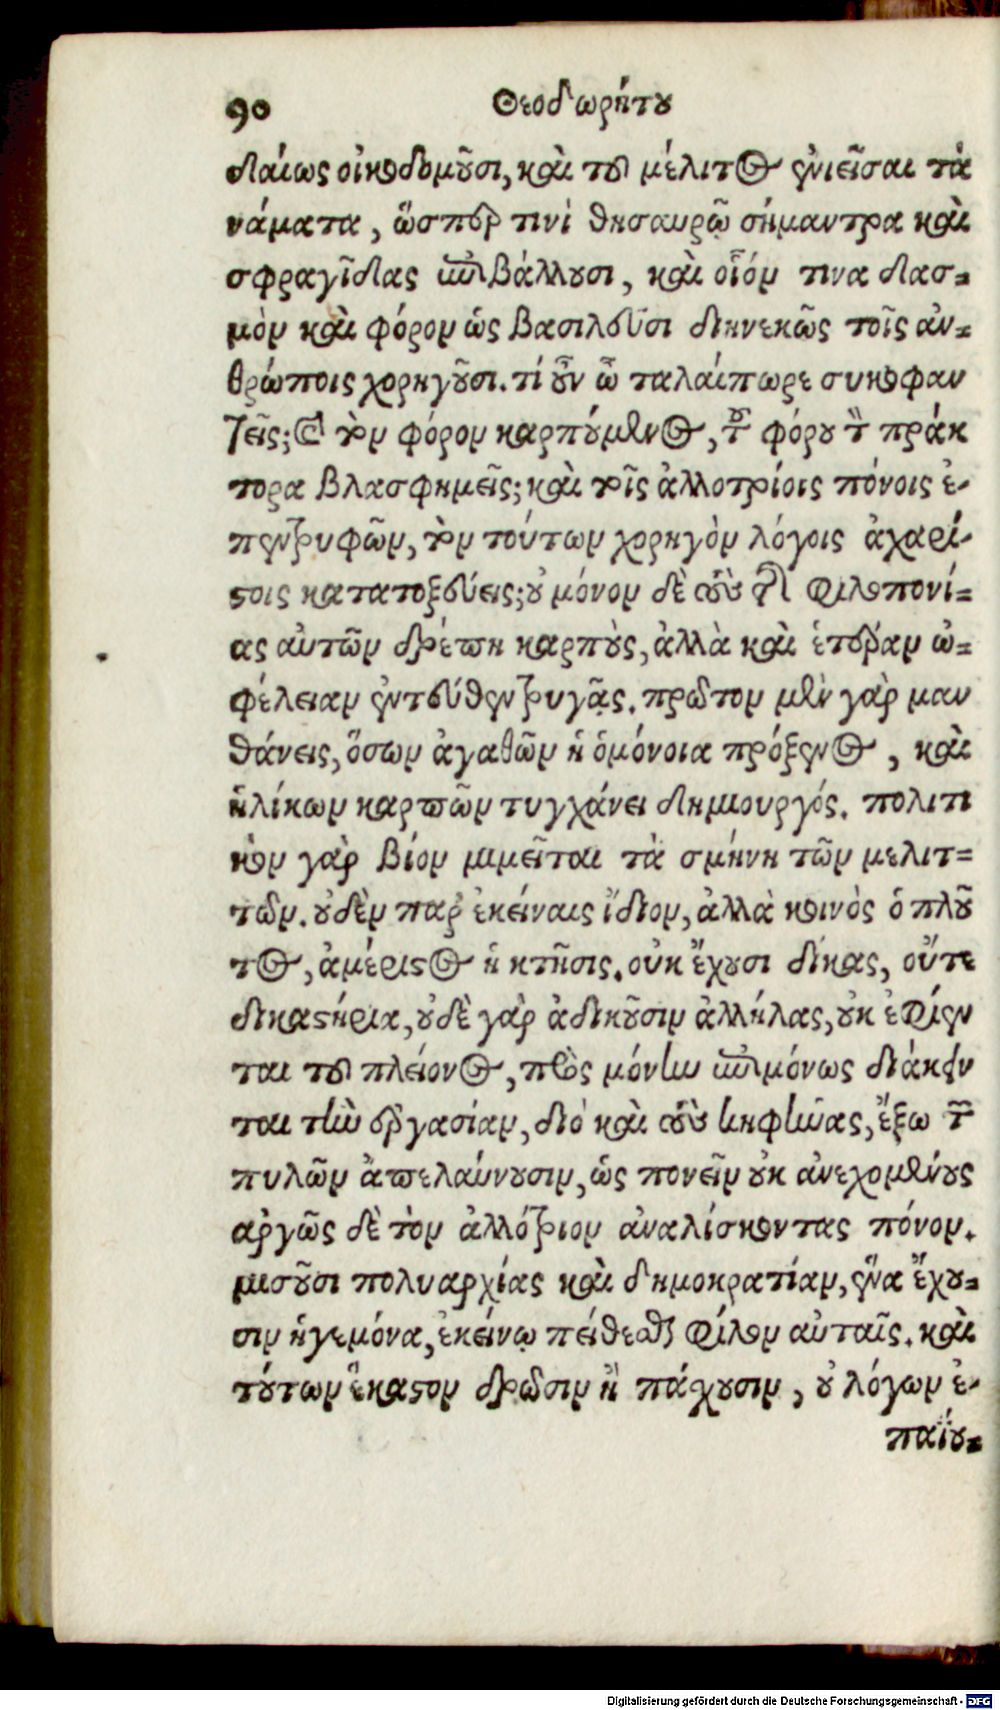 90 Θεοδωρήτου
δαίως οἰκοδομοῦσι, καὶ τοῦ μέλιτος ἐνιεῖσαι τὰ
νάματα, ὥσπερ τινὶ θησαυρῷ σήμαντρα καὶ
σφραγῖδας ἐπιβάλλουσι, καὶ οἷόν τινα δασ-
μὸν καὶ φόρον ὡς βασιλεῦσι διηνεκῶς τοῖς ἀν-
θρώποις χορηγοῦσι. τί οὖν ὦ ταλαίπωρε συκοφαν
τεῖς; καὶ τὸν φόρον καρπούμενος, τοῦ φόρου τὸν πράκ
τορα βλασφημεῖς; καὶ τοῖς ἀλλοτρίοις πόνοις ἐ-
πεντρυφῶν, τὸν τούτων χορηγὸν λόγοις ἀχαρί-
στοις κατατοξεύεις; οὐ μόνον δὲ τοὺς τῆς φιλοπονί-
ας αὐτῶν δρέπῃ καρποὺς, ἀλλὰ καὶ ἑτέραν ὠ-
φέλειαν ἐντεύθεν τρυγᾷς. πρῶτον μὲν γὰρ μαν
θάνεις, ὅσων ἀγαθῶν ἡ ὁμόνοια πρόξενος, καὶ
ἡλίκων καρπῶν τυγχάνει δημιουργός. πολιτι
κὸν γὰρ βίον μιμεῖται τὰ σμήνη τῶν μελιτ-
τῶν. οὐδὲν παρ' ἐκείναις ἴδιον, ἀλλὰ κοινὸς ὁ πλοῦ
τος, ἀμέριστος ἡ κτῆσις. οὐκ ἔχουσι δίκας, οὔτε
δικαστήρια, οὐδὲ γὰρ ἀδικοῦσιν ἀλλήλας, οὐκ ἐφίεν
ται τοῦ πλείονος, πρὸς μόνην ἐπιμόνως διάκειν
ται τὴν ἐργασίαν, διὸ καὶ τοὺς κηφῆνας, ἔξω τῶν
πυλῶν ἀπελαύνουσιν, ὡς πονεῖν οὐκ ἀνεχομένους
ἀργῶς δὲ τὸν ἀλλότριον ἀναλίσκοντας πόνον.
μισοῦσι πολυαρχίας καὶ δημοκρατίαν, ἕνα ἔχου-
σιν ἡγεμόνα, ἐκείνῳ πείθεσθαι φίλον αὐταῖς. καὶ
τούτων ἕκαστον δρῶσιν ἢ πάσχουσιν, οὐ λόγων ἐ-
παΐου-
Digitalisierung gefördert durch die Deutsche Forschungsgemeinschaft - DFG